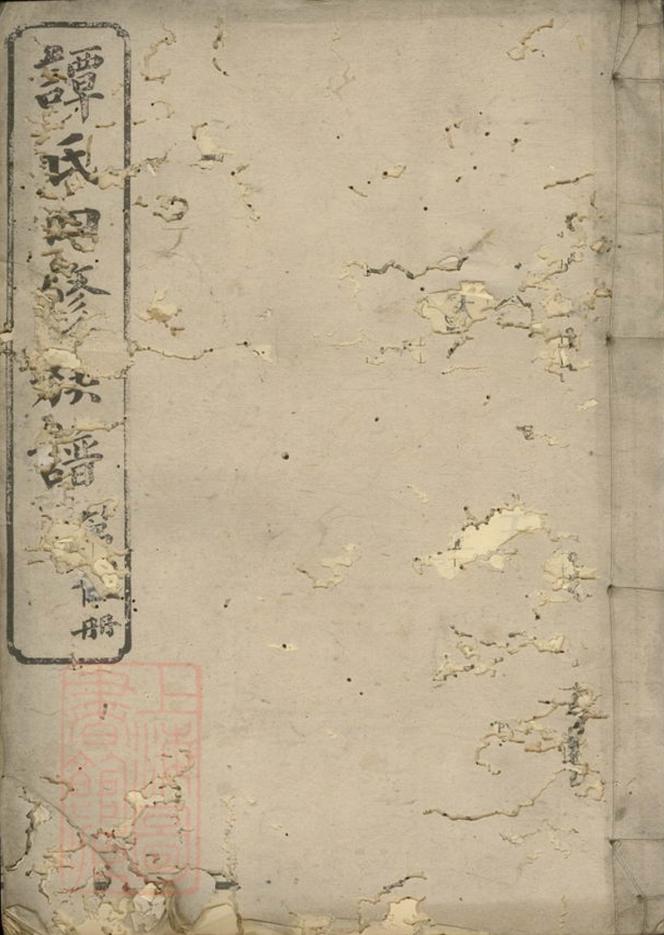 譚氏四修族譜
冊
上海圖書館藏